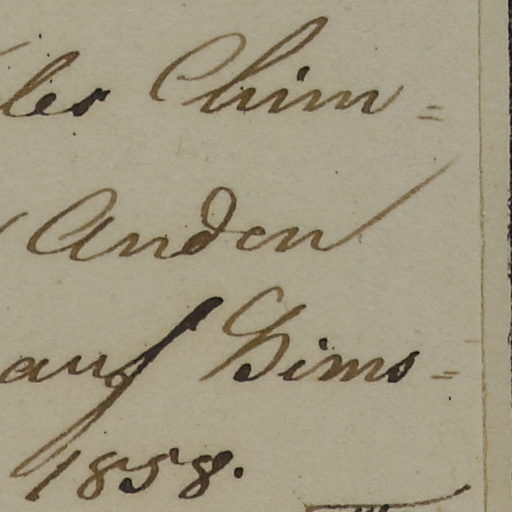 les Chim=
Anden
auf Bims=
1858.